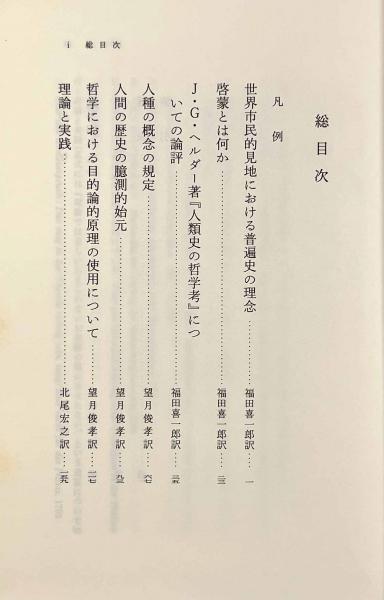 i 総目次
総目次
凡例
世界市民的見地における普遍史の理念……………福田喜一郎訳…… 一
啓蒙とは何か……………福田喜一郎訳…… 二三
J・G・ヘルダー著『人類史の哲学考』につ
いての論評……………福田喜一郎訳…… 三五
人種の概念の規定……………望月俊孝訳…… 六七
人間の歴史の臆測的始元……………望月俊孝訳…… 九三
哲学における目的論的原理の使用について……………望月俊孝訳…… 一一七
理論と実践……………北尾宏之訳…… 一五九